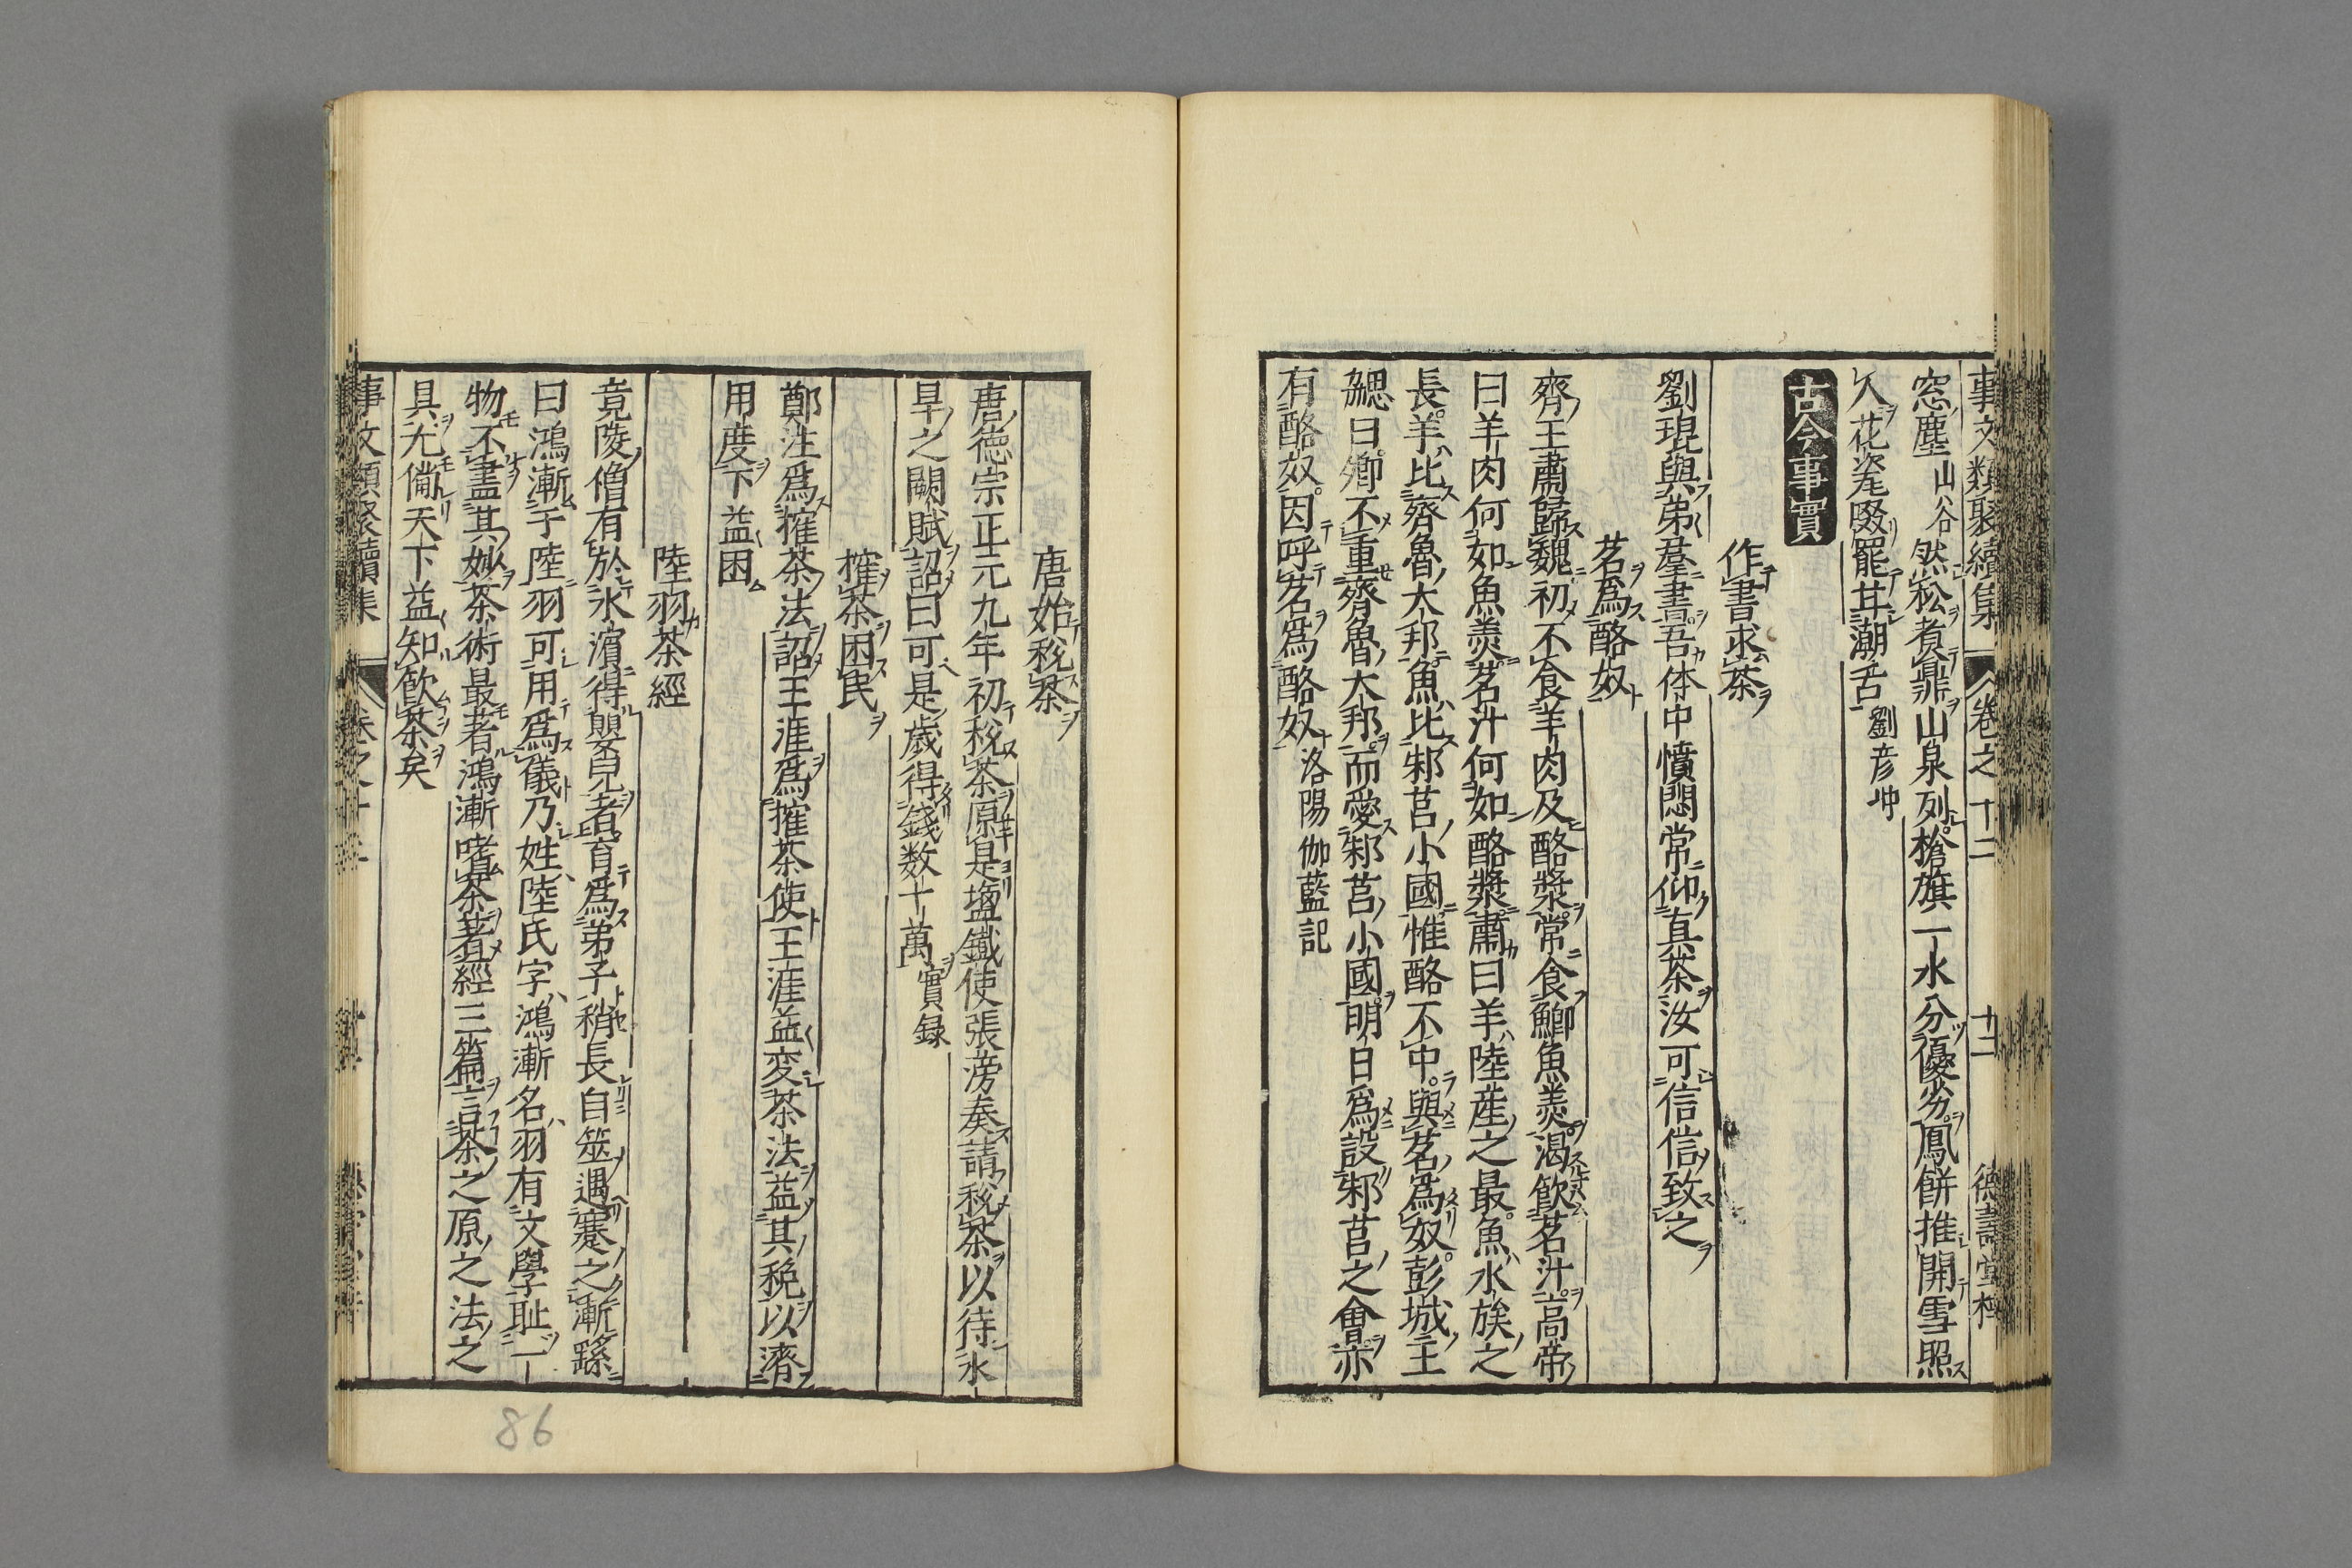 事文類聚續集 卷之十二 十二 德壽堂梓
窓塵山谷然松煮鼎山泉列槍旗一水分優劣鳳餅推開雪照
人花瓷啜罷甘潮舌劉彦冲
古今事實
作書求茶
劉琨與弟羣書吾体中憒悶常仰真茶汝可信信致之
茗為酪奴
齊王肅歸魏初不食羊肉及酪漿常食鯽魚羹渴飲茗汁高帝
曰羊肉何如魚羹茗汁何如酪漿肅曰羊陸産之最魚水族之
長羊比齊魯大邦魚比邾莒小國惟酪不中與茗為奴彭城王
勰曰卿不重齊魯大邦而愛邾莒小國明日為設邾莒之會亦
有酪奴因呼茗為酪奴洛陽伽藍記
唐始稅茶
唐徳宗正元九年初稅茶原是塩鐵使張滂奏請稅茶以待水
旱之闕賦詔曰可是歲得錢数十萬實録
搉茶困民
鄭注為搉茶法詔王涯為搉茶使王涯益変茶法益其稅以濟
用度下益困
陸羽茶經
竟陵僧有於水濱得嬰兒者育為弟子稍長自筮遇蹇之漸繇
曰鴻漸于陸羽可用為儀乃姓陸氏字鴻漸名羽有文學耻一
物不盡其妙茶術最著鴻漸嗜茶著經三篇言茶之原之法之
具尤備天下益知飲茶矣
事文類聚續集 卷之十二
86